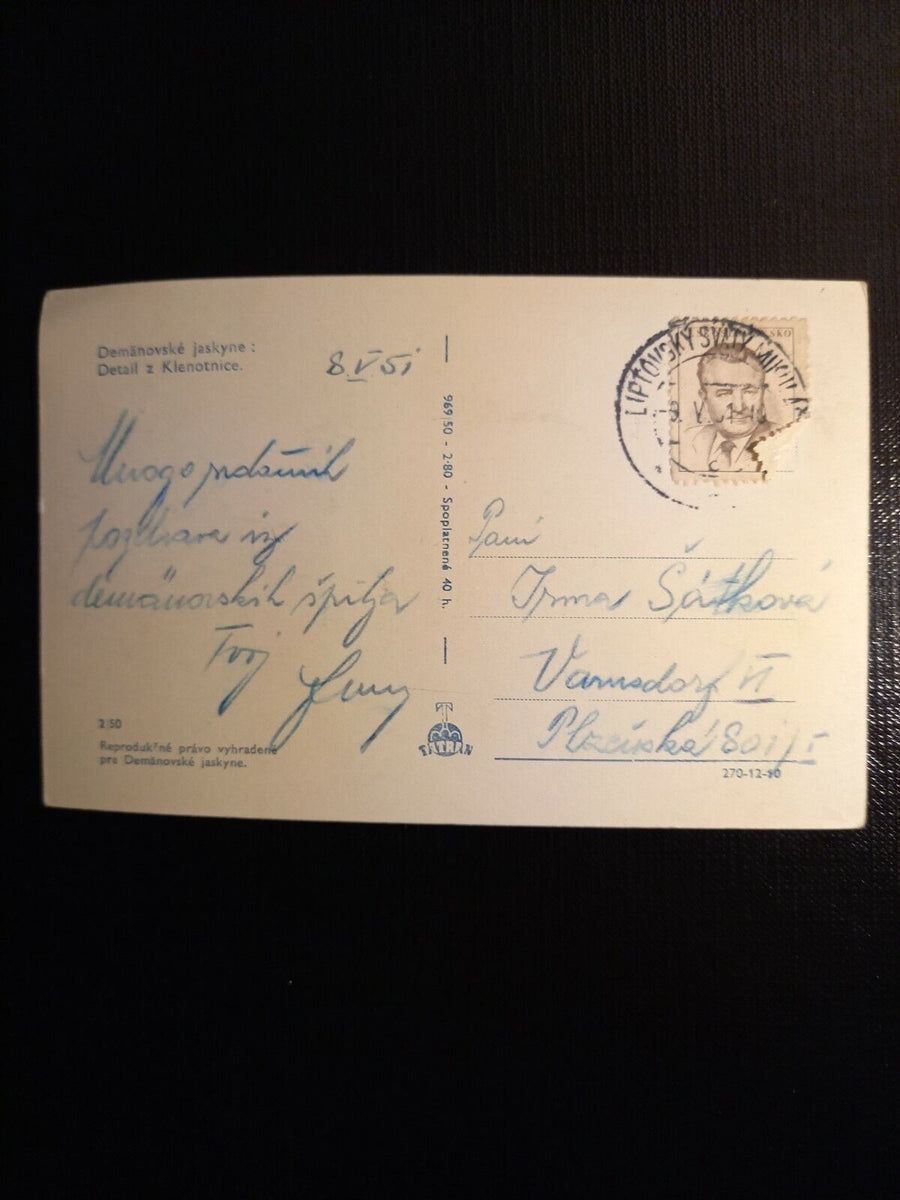 Demänovské jaskyne :
Detail z Klenotnice.
8.V 51
Mnogo srdačnih
pozdrava iz
demänovskih špilja
Tvoj
2/50
Reprodukčné právo vyhradené
pre Demänovské jaskyne.
969/50 - 2·80 - Spoplatnené 40 h.
TATRAN
LIPTOVSKÝ SVÄTÝ MIKULÁŠ
Pani
Irma Šátková
Varnsdorf VI
Plzeňská 801/I
270-12-10